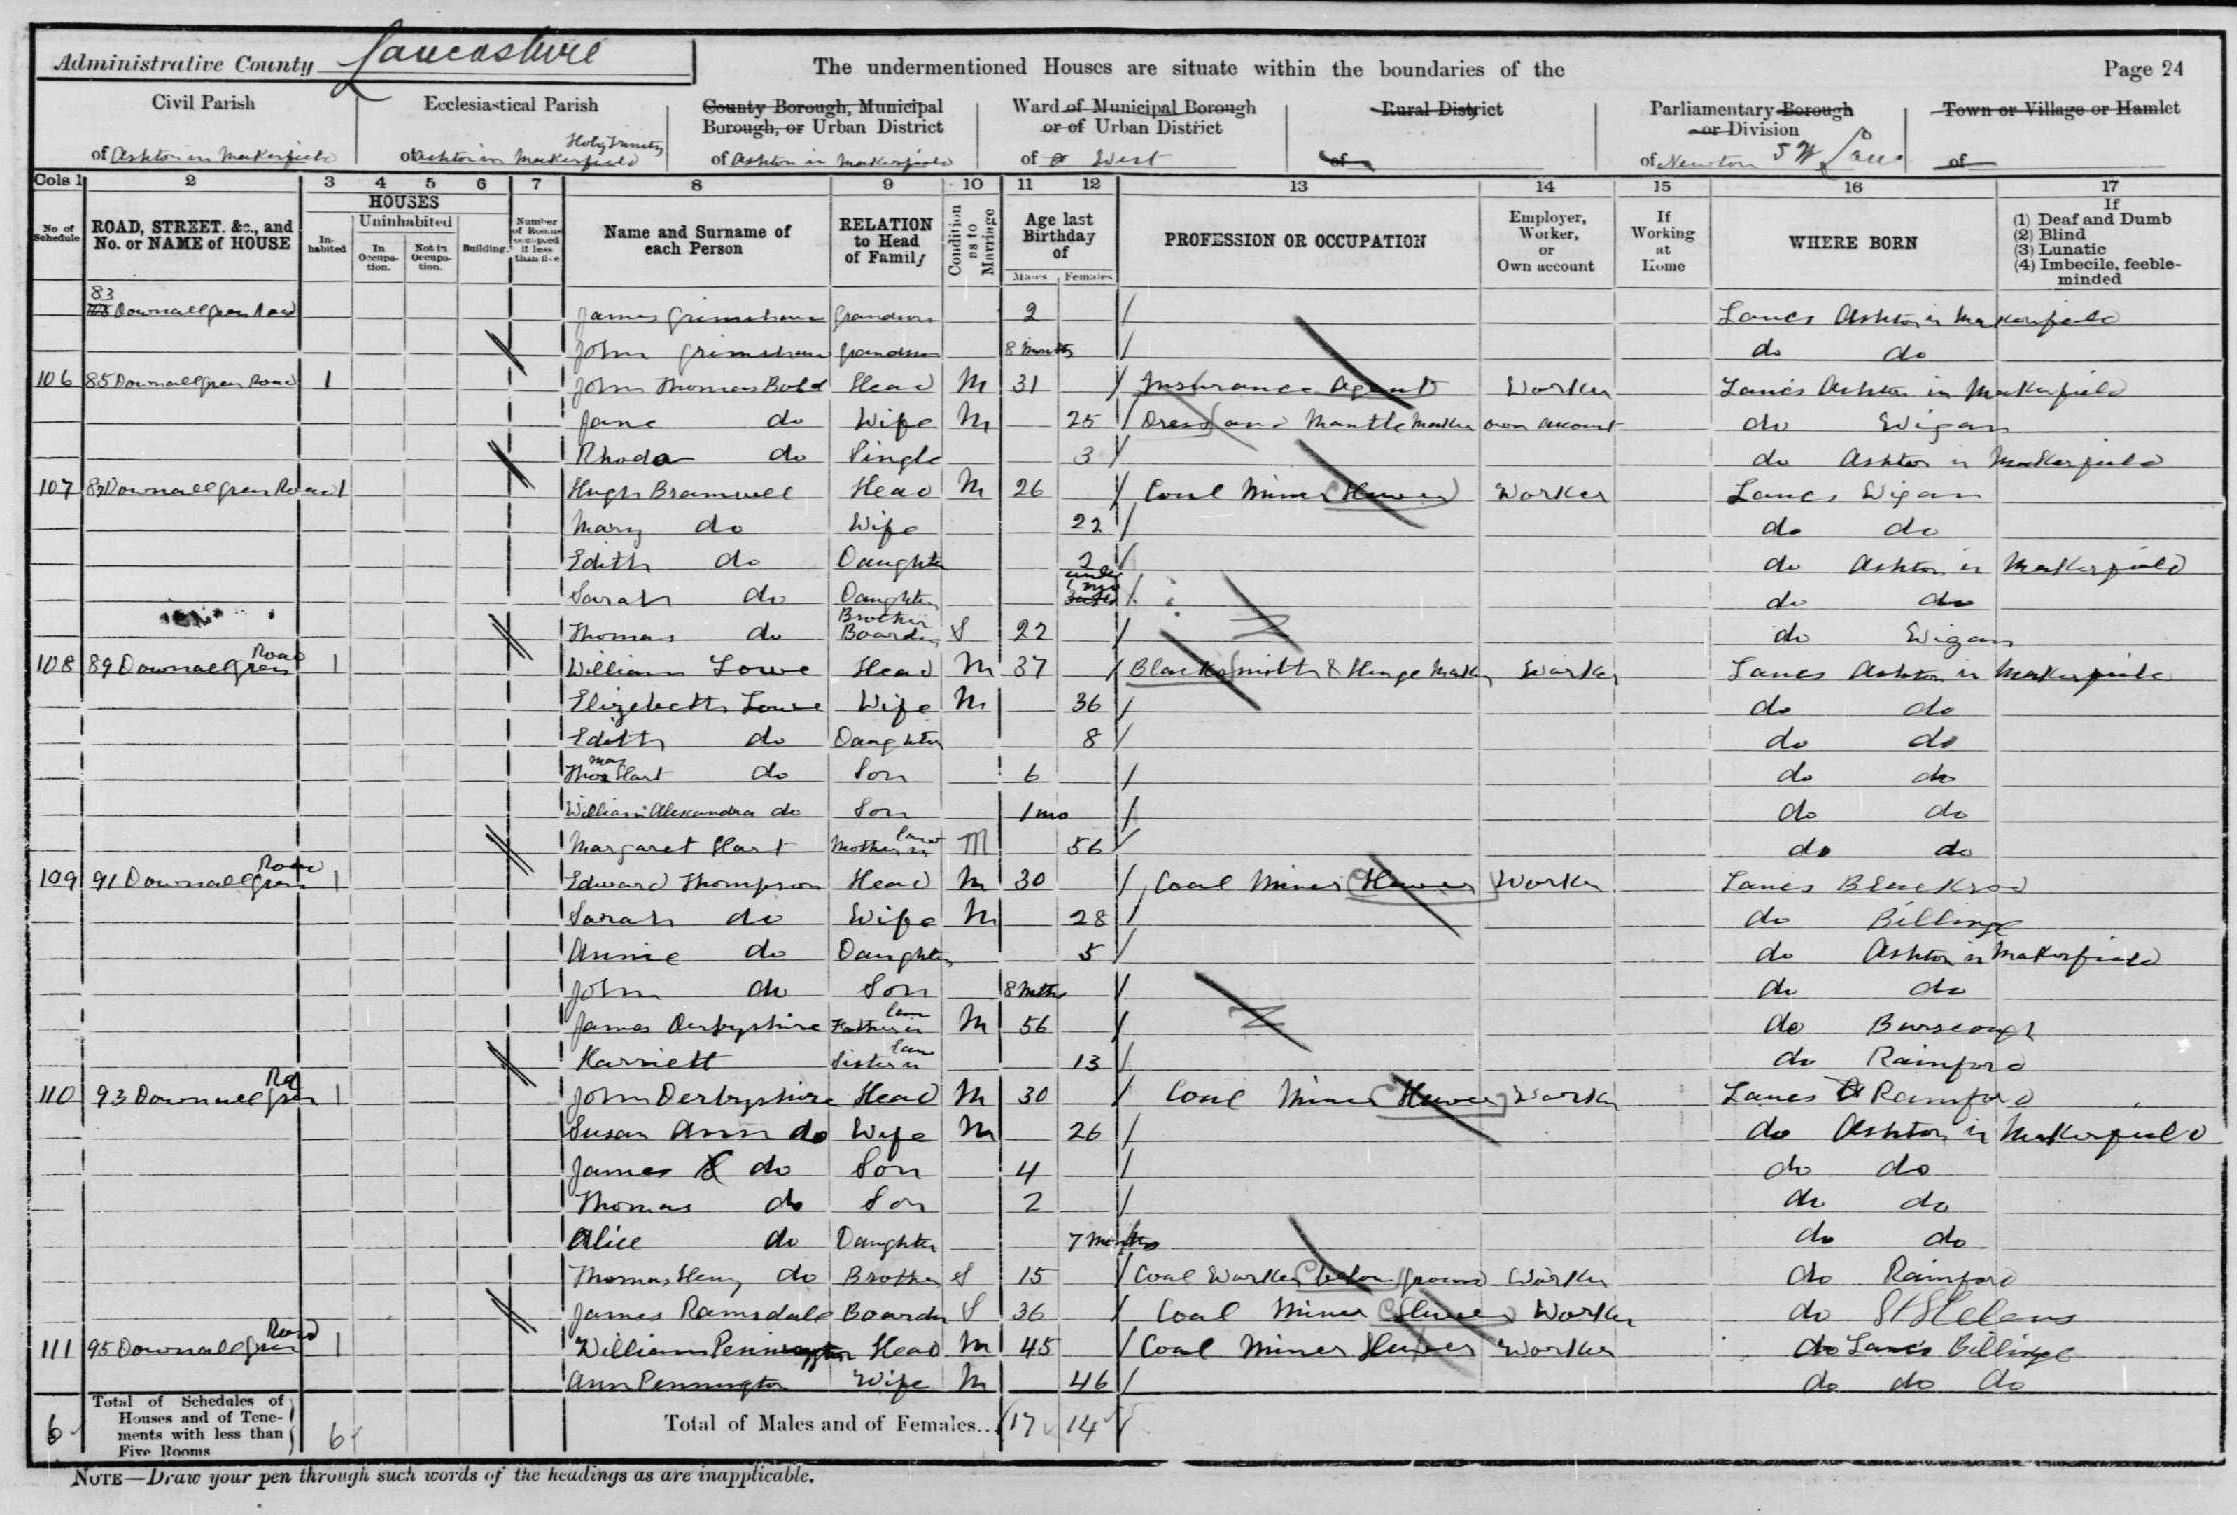 Administrative County Lancashire
The undermentioned Houses are situate within the boundaries of the
Page 24
Civil Parish
of Ashton in Makerfield
Ecclesiastical Parish
Holy Trinity
of Ashton in Makerfield
County Borough, Municipal
Borough, or Urban District
of Ashton in Makerfield
Ward of Municipal Borough
or of Urban District
of West
Rural District
of
Parliamentary Borough
or Division
of Newton S W Lanc
Town or Village or Hamlet
of
Cols 1 2 3 4 5 6 7 8 9 10 11 12 13 14 15 16 17
No of Schedule
ROAD, STREET, &c., and No. or NAME of HOUSE
HOUSES
Inhabited
Uninhabited
In Occupation.
Not in Occupation.
Building.
Number of Rooms occupied if less than five
Name and Surname of each Person
RELATION to Head of Family
Condition as to Marriage
Age last Birthday of
Males Females
PROFESSION OR OCCUPATION
Employer, Worker, or Own account
If Working at Home
WHERE BORN
If
(1) Deaf and Dumb
(2) Blind
(3) Lunatic
(4) Imbecile, feeble-minded
83 Downall Green Road James Grimshaw Grandson 2 Lancs Ashton in Makerfield
John Grimshaw Grandson 8 months do do
106 85 Downall Green Road 1 John Thomas Bold Head M 31 Insurance Agent Worker Lancs Ashton in Makerfield
Jane do Wife M 25 Dress and Mantle Maker own account do Wigan
Rhoda do Single 3 do Ashton in Makerfield
107 87 Downall Green Road 1 Hugh Bramwell Head M 26 Coal Miner Hewer Worker Lancs Wigan
Mary do Wife 22 do do
Edith do Daughter 2 do Ashton in Makerfield
Sarah do Daughter under 1 mo do do
Thomas do Brother Boarder S 22 do Wigan
108 89 Downall Green Road 1 William Lowe Head M 37 Blacksmith & Hinge Maker Worker Lancs Ashton in Makerfield
Elizabeth Lowe Wife M 36 do do
Edith do Daughter 8 do do
Thomas Hart do Son 6 do do
William Alexandra do Son 1 mo do do
Margaret Hart Mother in law M 56 do do
109 91 Downall Green Road 1 Edward Thompson Head M 30 Coal Miner Hewer Worker Lancs Blackrod
Sarah do Wife M 28 do Billinge
Annie do Daughter 5 do Ashton in Makerfield
John do Son 8 mths do do
James Derbyshire Father in law M 56 do Burscough
Harriett Sister in law 13 do Rainford
110 93 Downall Green Rd 1 John Derbyshire Head M 30 Coal Miner Hewer Worker Lancs Rainford
Susan Ann do Wife M 26 do Ashton in Makerfield
James do Son 4 do do
Thomas do Son 2 do do
Alice do Daughter 7 months do do
Thomas Henry do Brother S 15 Coal Worker below ground Worker do Rainford
James Ramsdale Boarder S 36 Coal Miner Hewer Worker do St Helens
111 95 Downall Green Road 1 William Pennington Head M 45 Coal Miner Hewer Worker do Lancs Billinge
Ann Pennington Wife M 46 do do do
6 Total of Schedules of Houses and of Tenements with less than Five Rooms 6 Total of Males and of Females... 17 14
NOTE—Draw your pen through such words of the headings as are inapplicable.